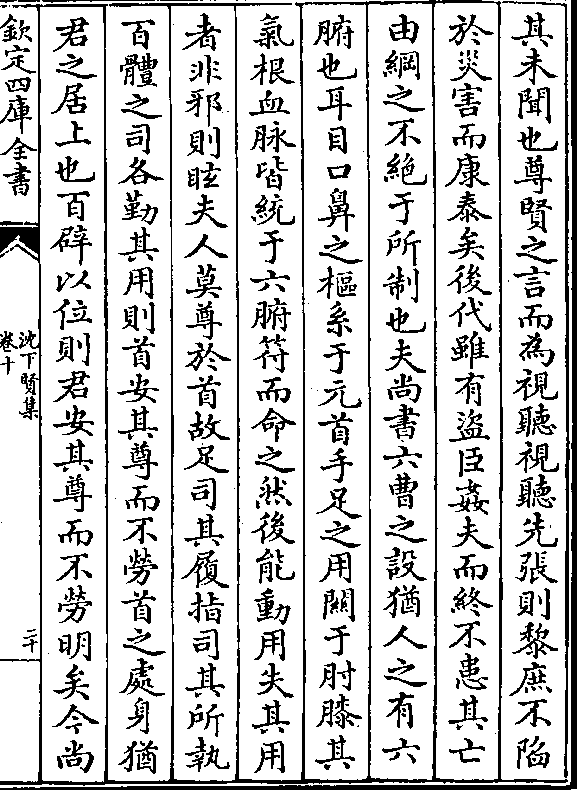 其未聞也尊賢之言而為視聽視聽先張則黎庶不陷
於災害而康泰矣後代雖有盜臣姦夫而終不患其亡
由綱之不絶于所制也夫尚書六曹之設猶人之有六
腑也耳目口鼻之樞系于元首手足之用關于肘膝其
氣根血脉皆統于六腑符而命之然後能動用失其用
者非邪則眩夫人莫尊於首故足司其履指司其所執
百體之司各勤其用則首安其尊而不勞首之處身猶
君之居上也百辟以位則君安其尊而不勞明矣今尚
欽定四庫全書
沈下賢集
卷十
二十